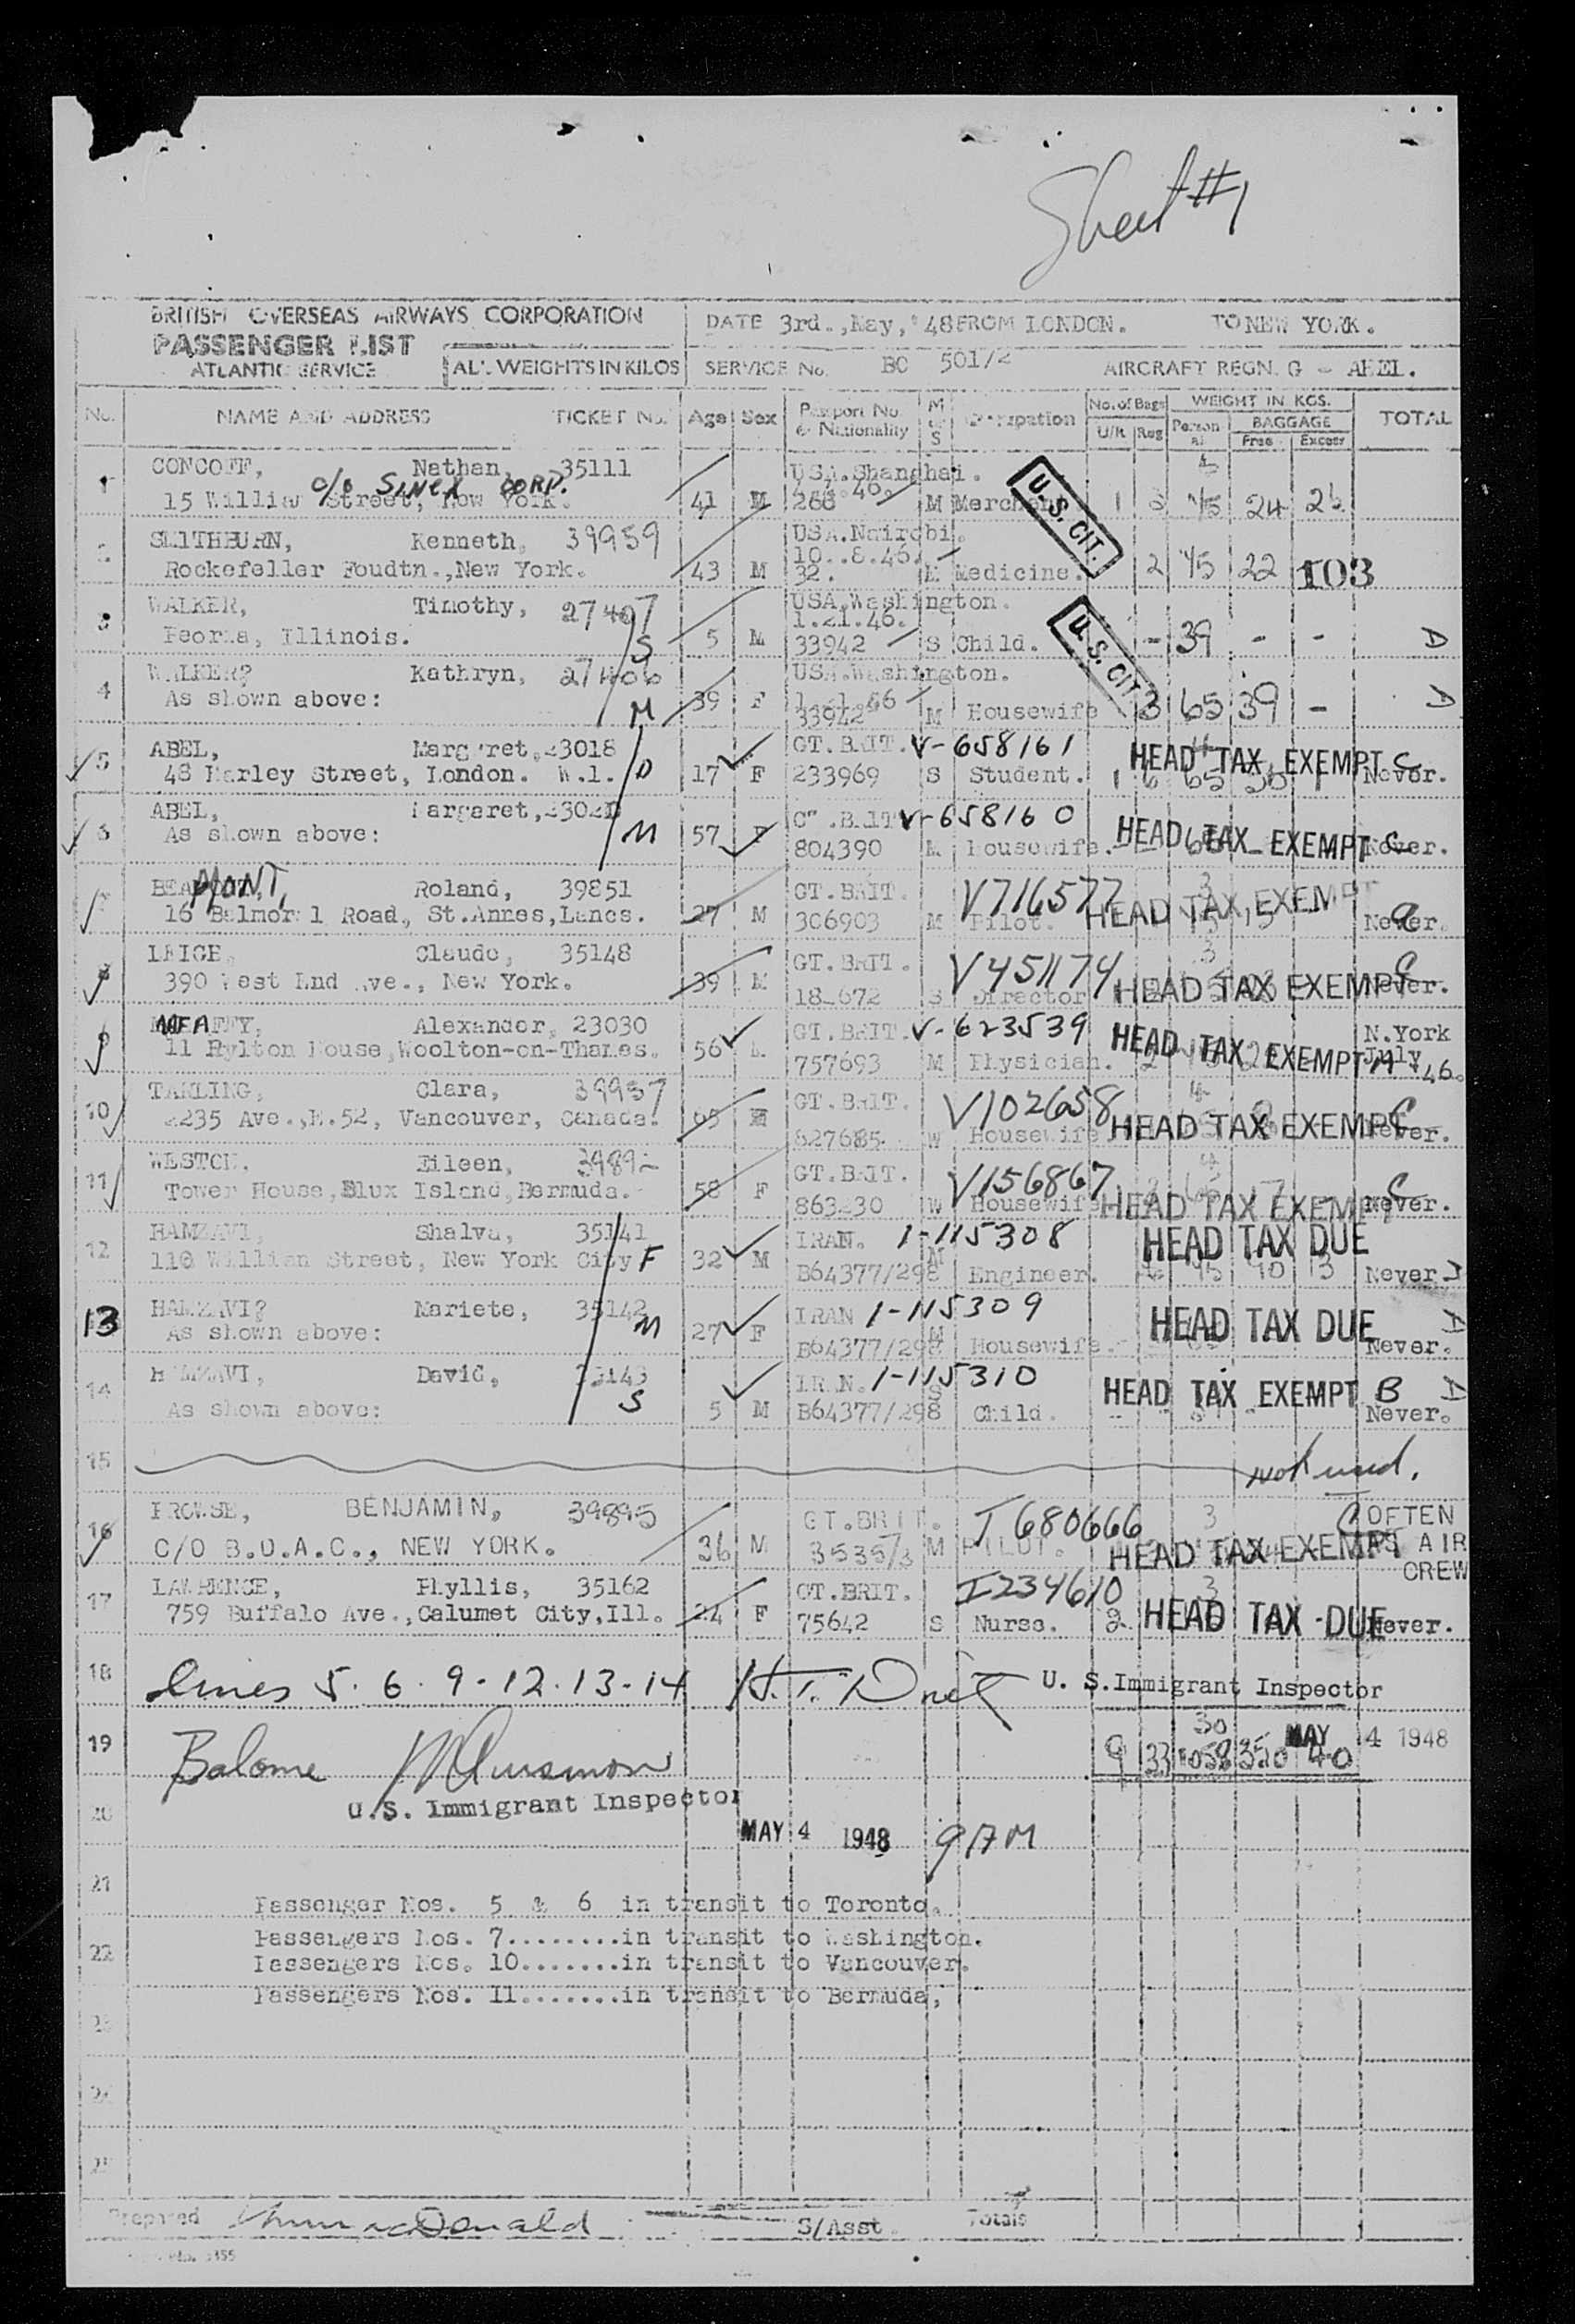 Sheet #1
BRITISH OVERSEAS AIRWAYS CORPORATION
PASSENGER LIST
ATLANTIC SERVICE
ALL WEIGHTS IN KILOS
DATE 3rd.,May,'48 FROM LONDON. TO NEW YORK.
SERVICE No. BC 501/2 AIRCRAFT REGN. G - AHEL.
No. NAME AND ADDRESS TICKET No. Age Sex Passport No. & Nationality M or S Occupation No. of Bags U/R Reg WEIGHT IN KGS. Personal BAGGAGE Free Excess TOTAL
1 CONCOFF, Nathan, 35111 USA.Shanghai.
c/o SINEX CORP.
15 William Street, New York. 41 M 266 M Merchant 1 3 75 24 26
U.S. CIT.
2 Kenneth, 39959 USA.Nairobi.
10..8.46.
Rockefeller Foudtn.,New York. 43 M 32. M Medicine. 2 75 22 103
3 WALKER, Timothy, 27407 USA.Washington.
1.21.46.
Peoria, Illinois. S 5 M 33942 S Child. - 39 - - D
U.S. CIT
4 WALKER? Kathryn, 27406 USA.Washington.
As shown above: M 39 F 33942 M Housewife 3 65 39 - D
5 ABEL, Margaret, 23018 GT.BRIT. V-658161 HEAD TAX EXEMPT C
48 Harley Street, London. W.1. D 17 F 233969 S Student. 1 Never.
6 ABEL, Margaret, GT.BRIT V-658160 HEAD TAX EXEMPT C
As shown above: M 57 F 804390 M Housewife. Never.
7 BEAMONT, Roland, 39851 GT.BRIT. V716577 HEAD TAX EXEMPT
16 Balmoral Road, St.Annes,Lancs. 27 M 306903 M Pilot. Never.
8 Claude, 35148 GT.BRIT. V451174 HEAD TAX EXEMPT C
390 West End Ave., New York. 39 M S Director Never.
9 Alexander, 23030 GT.BRIT. V-623539 HEAD TAX EXEMPT A N.York
11 Rylton House,Woolton-on-Thames. 56 757693 M Physician. 2 July '46.
10 Clara, 39937 GT.BRIT. V102658 HEAD TAX EXEMPT C
2235 Ave.,E.52, Vancouver, Canada. 65 627685 W Housewife Never.
11 WESTON. Eileen, GT.BRIT. V156867 HEAD TAX EXEMPT C
Tower House, Island,Bermuda. 58 F 863230 W Housewife Never.
12 HAMZAVI, Shalva, 35141 IRAN. I-115308 HEAD TAX DUE
110 William Street, New York City F 32 M B64377/298 M Engineer. Never D
13 HAMZAVI? Mariete, 35142 IRAN I-115309 HEAD TAX DUE D
As shown above: M 27 F B64377/298 M Housewife. Never.
14 HAMZAVI, David, 35143 IRAN. I-115310 HEAD TAX EXEMPT B D
As shown above: S 5 M B64377/298 S Child. Never.
15 Not used.
16 PROWSE, BENJAMIN, 39895 GT.BRIT. I680666 3 C OFTEN
C/O B.O.A.C., NEW YORK. 36 M M PILOT. HEAD TAX EXEMPT AS AIR
CREW
17 LAWRENCE, Phyllis, 35162 GT.BRIT. I234610 3
759 Buffalo Ave.,Calumet City,Ill. 24 F 75642 S Nurse. 2 HEAD TAX DUE Never.
18 Lines 5. 6. 9-12.13-14 U. S.Immigrant Inspector
19 30 MAY 4 1948
9 33 1058 350 40
20 U.S. Immigrant Inspector
MAY 4 1948 9AM
21 Passenger Nos. 5 & 6 in transit to Toronto.
Passengers Nos. 7........in transit to Washington.
22 Passengers Nos. 10.......in transit to Vancouver.
Passengers Nos. 11.......in transit to Bermuda,
23
24
25
Prepared MacDonald S/Asst. Totals